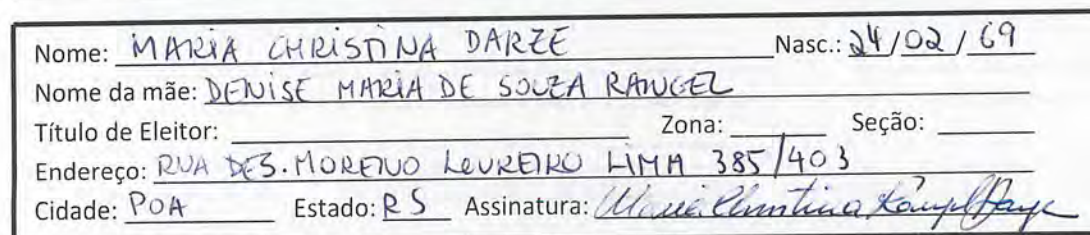 Nome: MARIA CHRISTINA DARZE Nasc.: 24/02/69
Nome da mãe: DENISE MARIA DE SOUZA RANGEL
Título de Eleitor: Zona: Seção:
Endereço: RUA DES. MORENO LOUREIRO LIMA 385/403
Cidade: POA Estado: RS Assinatura: Maria Christina Rangel Darze